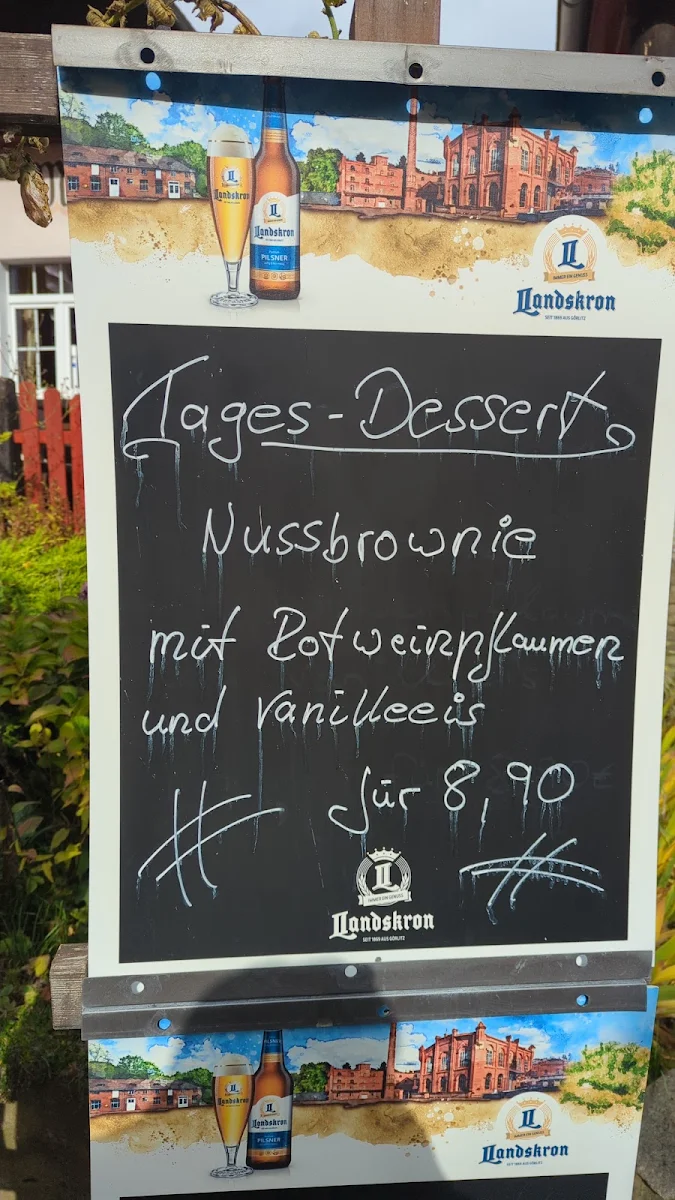 Landskron
Landskron
PILSNER
IMMER EIN GENUSS
Landskron
SEIT 1869 AUS GÖRLITZ
Tages-Dessert
Nussbrownie
mit Rotweinpflaumen
und Vanilleeis
für 8,90
IMMER EIN GENUSS
Landskron
SEIT 1869 AUS GÖRLITZ
Landskron
Landskron
PILSNER
Landskron